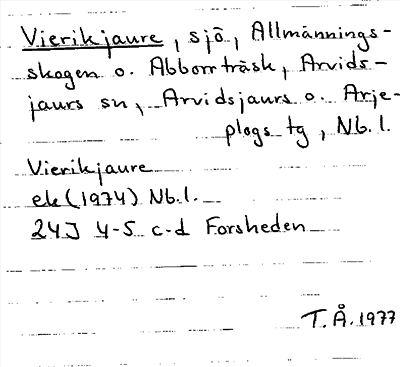 Vierikjaure, sjö, Allmännings-
skogen o. Abborrträsk, Arvids-
jaurs sn, Arvidsjaurs o. Arje-
plogs tg, Nb.l.
Vierikjaure
ek (1974) Nb.l.
24J 4-5 c-d Forsheden
T.Å. 1977